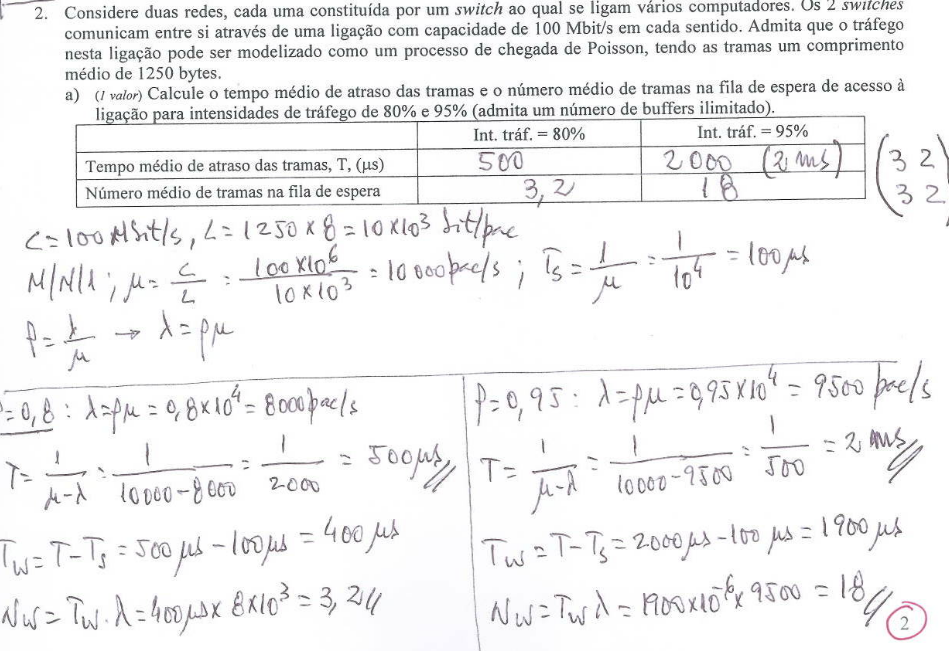 2. Considere duas redes, cada uma constituída por um switch ao qual se ligam vários computadores. Os 2 switches
comunicam entre si através de uma ligação com capacidade de 100 Mbit/s em cada sentido. Admita que o tráfego
nesta ligação pode ser modelizado como um processo de chegada de Poisson, tendo as tramas um comprimento
médio de 1250 bytes.
a) (1 valor) Calcule o tempo médio de atraso das tramas e o número médio de tramas na fila de espera de acesso à
ligação para intensidades de tráfego de 80% e 95% (admita um número de buffers ilimitado).
Int. tráf. = 80% Int. tráf. = 95%
Tempo médio de atraso das tramas, T, (μs) 500 2000 (2 ms)
Número médio de tramas na fila de espera 3,2 18
(3 2
3 2
C=100Mbit/s, L=1250×8=10×10³ bit/pac
M/M/1; μ= C/L = 100×10⁶/10×10³ = 10000pac/s; Ts = 1/μ = 1/10⁴ = 100μs
ρ=λ/μ → λ=ρμ
ρ=0,8: λ=ρμ=0,8×10⁴=8000pac/s
T= 1/μ-λ = 1/10000-8000 = 1/2000 = 500μs
Tw=T-Ts=500μs-100μs=400μs
Nw=Tw.λ=400μs×8×10³=3,2
ρ=0,95: λ=ρμ=0,95×10⁴=9500 pac/s
T= 1/μ-λ = 1/10000-9500 = 1/500 = 2 ms
Tw=T-Ts=2000μs-100μs=1900μs
Nw=Twλ=1900×10⁻⁶×9500=18
2